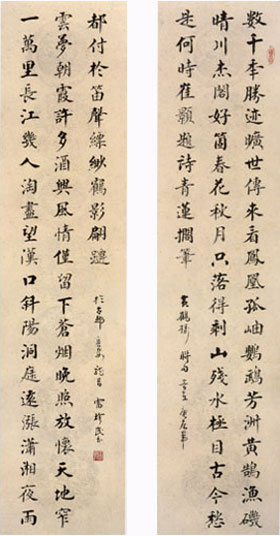 数千秊勝迹曠世傳來看鳳凰孤岫鸚鵡芳洲黃鵠漁磯
晴川杰閣好箇春花秋月只落得剩山殘水極目古今愁
是何時崔顥題詩青蓮擱筆
黃鶴樓
一萬里長江幾人淘盡望漢口斜陽洞庭遠漲瀟湘夜雨
雲夢朝霞許多酒興風情僅留下蒼烟晚照放懷天地窄
都付於笛聲縹緲鶴影翩躚